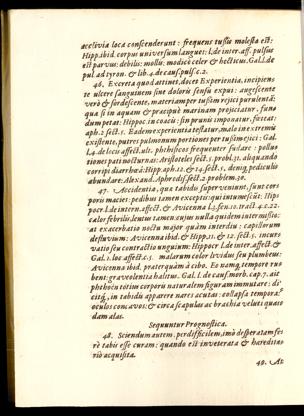 acclivia loca conscenderunt: frequens tussis molesta est:
Hipp. ibid. corpus universum languet: l. de inter. aff. pulsus
est parvus: debilis: mollis: modicè celer & hecticus. Gal. l. de
pul. ad tyron. & lib. 4. de caus. puls. c. 2.
46. Excreta quod attinet, docet Experientia, incipien-
te ulcere sanguinem sine doloris sensu expui: augescente
verò & sordescente, materiam per tussim rejici purulentã:
qua si in aquam & præcipuè marinam projiciatur, fun-
dum petat: Hippoc. in coacis: sin prunis imponatur, fœteat:
aph. 2. sect. 5. Eadem experientia testatur, malo in extremis
existente, putres pulmonum portiones per tussim ejici: Gal.
l. 4. de locis affect. ult. phthisicos frequenter sudare: pollu-
tiones pati nocturnas: Aristoteles sect. 5. probl. 31. aliquando
corripi diarrhœâ: Hipp. aph. 12. & 14. sect. 5. deniq; pediculis
abundare: Alexand. Aphrodis. sect. 2. problem. 26.
47. Accidentia, quæ tabidis superveniunt, sunt cor-
poris macies: pedibus tamen exceptis: qui intumescũt: Hip-
pocr. l. de intern. affect. & Avicenna l. 3. fen. 10. tract. 4. c. 22.
calor febrilis, lentus tamen: cujus nulla quidem intermissio:
at exacerbatio noctu major quàm interdiu: capillorum
defluvium: Avicenna ibid. & Hipp. 11. & 12. sect. 5. incurs
vatio seu contractio unguium: Hippocr. l. de inter. affect. &
Gal. l. loc. affect. c. 5. malarum color lividus seu plumbeus:
Avicenna ibid. præterquàm à cibo. Eo namq; tempore ru-
bent: graveolentia halitus. Gal. l. de caus. morb. cap. 7. ait
phthoën totim corporis naturalem figuram immutare: di-
citq́;, in tabidis apparere nares acutas: collapsa tempora:
oculos concavos: & circa scapulas ac brachia veluti quas-
dam alas.
Sequuntur Prognostica.
48. Sciendum autem, perdifficilem, imò desperatam fe-
rè tabis esse curam: quando est inveterata & hæredita-
riò acquisita.
49. At